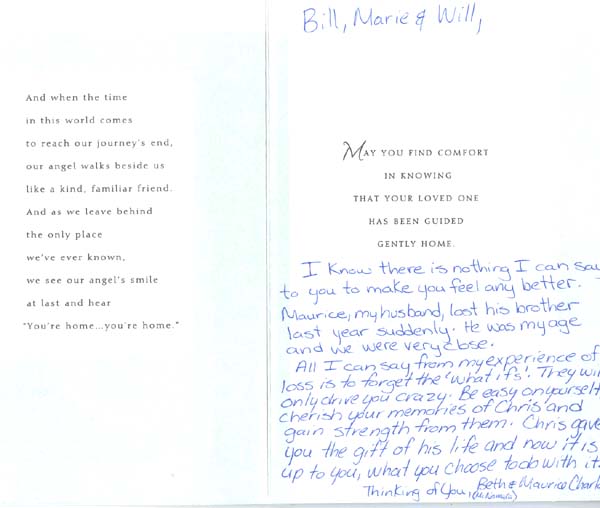 And when the time
in this world comes
to reach our journey's end,
our angel walks beside us
like a kind, familiar friend.
And as we leave behind
the only place
we've ever known,
we see our angel's smile
at last and hear
"You're home...you're home."
Bill, Marie & Will,
MAY YOU FIND COMFORT
IN KNOWING
THAT YOUR LOVED ONE
HAS BEEN GUIDED
GENTLY HOME.
I know there is nothing I can say
to you to make you feel any better.
Maurice, my husband, lost his brother
last year suddenly. He was my age
and we were very close.
All I can say from my experience of
loss is to forget the 'what ifs'. They will
only drive you crazy. Be easy on yourself
cherish your memories of Chris and
gain strength from them. Chris gave
you the gift of his life and now it is
up to you, what you choose to do with it.
Thinking of You, Beth & Maurice